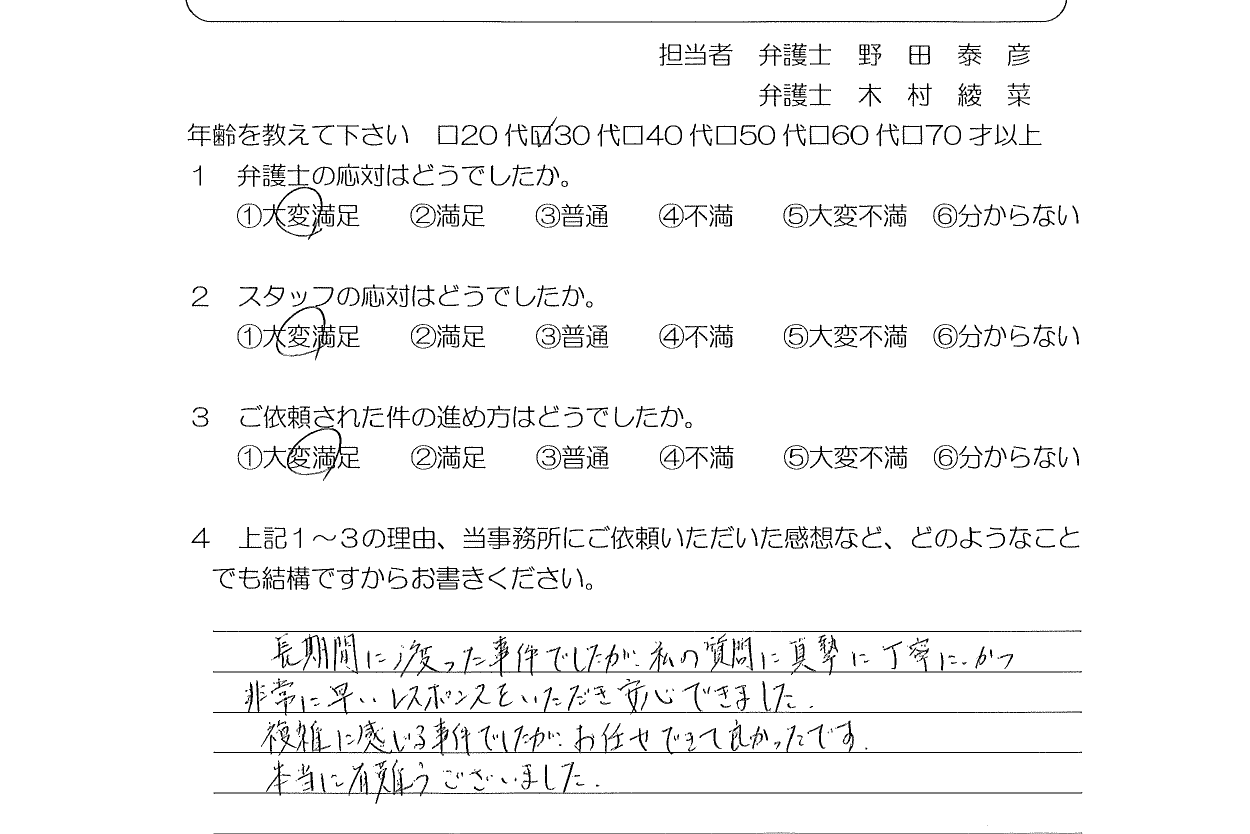 担当者 弁護士 野 田 泰 彦
弁護士 木 村 綾 菜
年齢を教えて下さい □20代☑30代□40代□50代□60代□70才以上
1 弁護士の応対はどうでしたか。
①大変満足 ②満足 ③普通 ④不満 ⑤大変不満 ⑥分からない
2 スタッフの応対はどうでしたか。
①大変満足 ②満足 ③普通 ④不満 ⑤大変不満 ⑥分からない
3 ご依頼された件の進め方はどうでしたか。
①大変満足 ②満足 ③普通 ④不満 ⑤大変不満 ⑥分からない
4 上記1~3の理由、当事務所にご依頼いただいた感想など、どのようなこと
でも結構ですからお書きください。
長期間に渡った事件でしたが、私の質問に真摯に丁寧に、かつ
非常に早いレスポンスをいただき安心できました。
複雑に感じる事件でしたが、お任せできて良かったです。
本当に有難うございました。